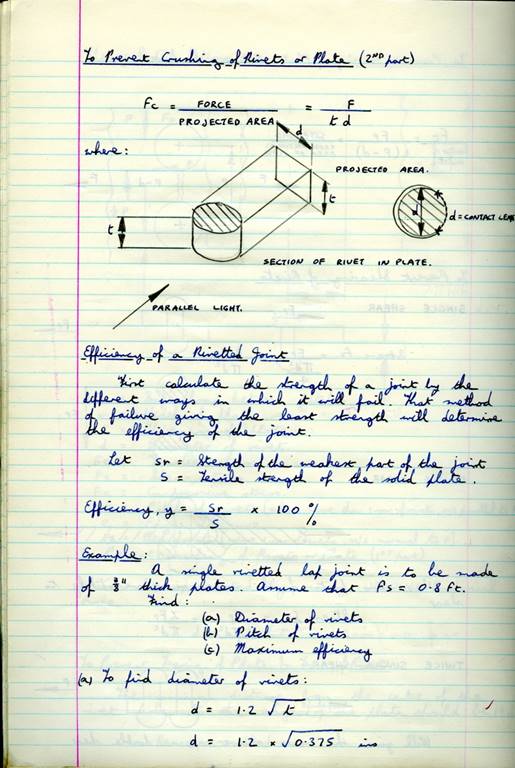 To Prevent Crushing of Rivets or Plate (2ND part)
Fc = FORCE / PROJECTED AREA = F / t d
d
where:
PROJECTED AREA.
t
t
d
d = CONTACT
SECTION OF RIVET IN PLATE.
PARALLEL LIGHT.
Efficiency of a Rivetted Joint
First calculate the strength of a joint by the
different ways in which it will fail. That method
of failure giving the least strength will determine
the efficiency of the joint.
Let Sr = Stength of the weakest part of the joint
S = Tensile strength of the solid plate.
Efficiency, y = Sr / S × 100 %
Example:
A single rivetted lap joint is to be made
of 3/8" thick plates. Assume that Fs = 0.8 Ft.
Find:
(a) Diameter of rivets
(b) Pitch of rivets
(c) Maximum efficiency
(a) To find diameter of rivets:
d = 1.2 √t
d = 1.2 × √0.375 ins